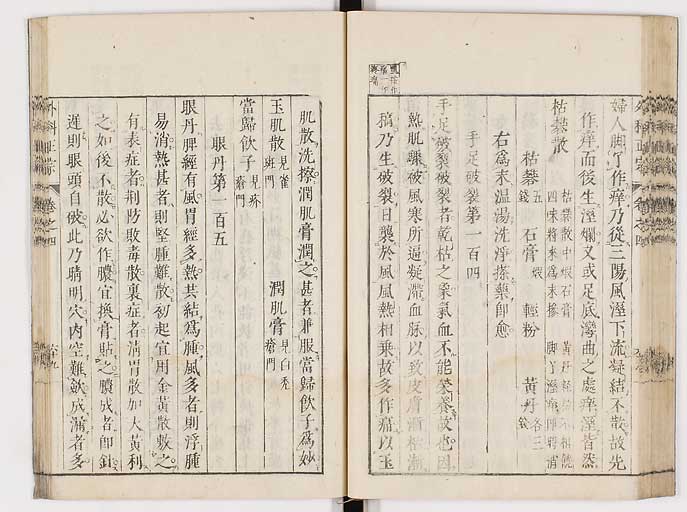 婦人脚丫作痒乃從三陽風溼下流凝結不散故先
作痒而後生溼爛又或足底灣曲之處痒溼皆然
枯礬散
枯礬散中煅石膏
黃丹輕粉不相饒
四味將來為末摻
脚丫溼痒即時消
枯礬五錢 石膏煅 輕粉 黃丹各三錢
右為末溫湯洗淨搽藥即愈
手足破裂第一百四
手足破裂破裂者乾枯之象氣血不能榮養故也因
熱肌驟被風寒所逼凝滯血脉以致皮膚漸枯漸
槁乃生破裂日襲於風風熱相乘故多作痛以玉
肌散洗擦潤肌膏潤之甚者兼服當歸飲子為妙
玉肌散見雀斑門 潤肌膏見白禿瘡門
當歸飲子見疥瘡門
眼丹第一百五
眼丹脾經有風胃經多熱共結為腫風多者則浮腫
易消熱甚者則堅腫難散初起宜用金黃散敷之
有表症者荊防敗毒散裏症者清胃散加大黃利
之如後不散必欲作膿宜換膏貼之膿成者即針
遲則眼頭自破此乃睛明穴內空難斂成漏者多
外科正宗 卷之四 六十九